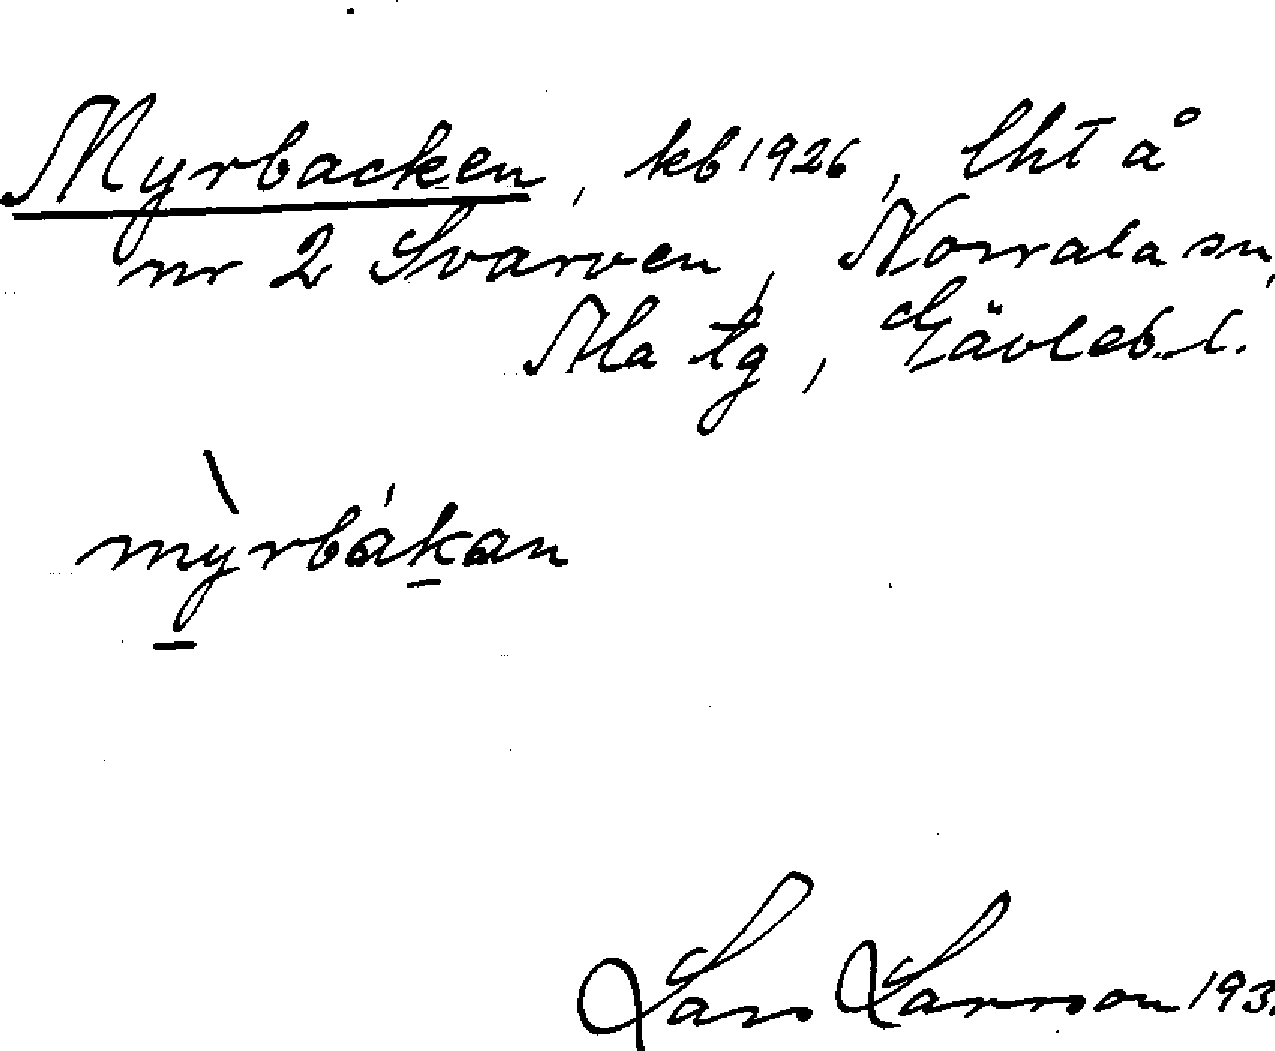 Myrbacken, kb 1926, lht å
nr 2 Svarven, Norrala sn,
Ala tg, Gävleb. l.
mỳ̠̠rbák̠an
Lars Larsson 193